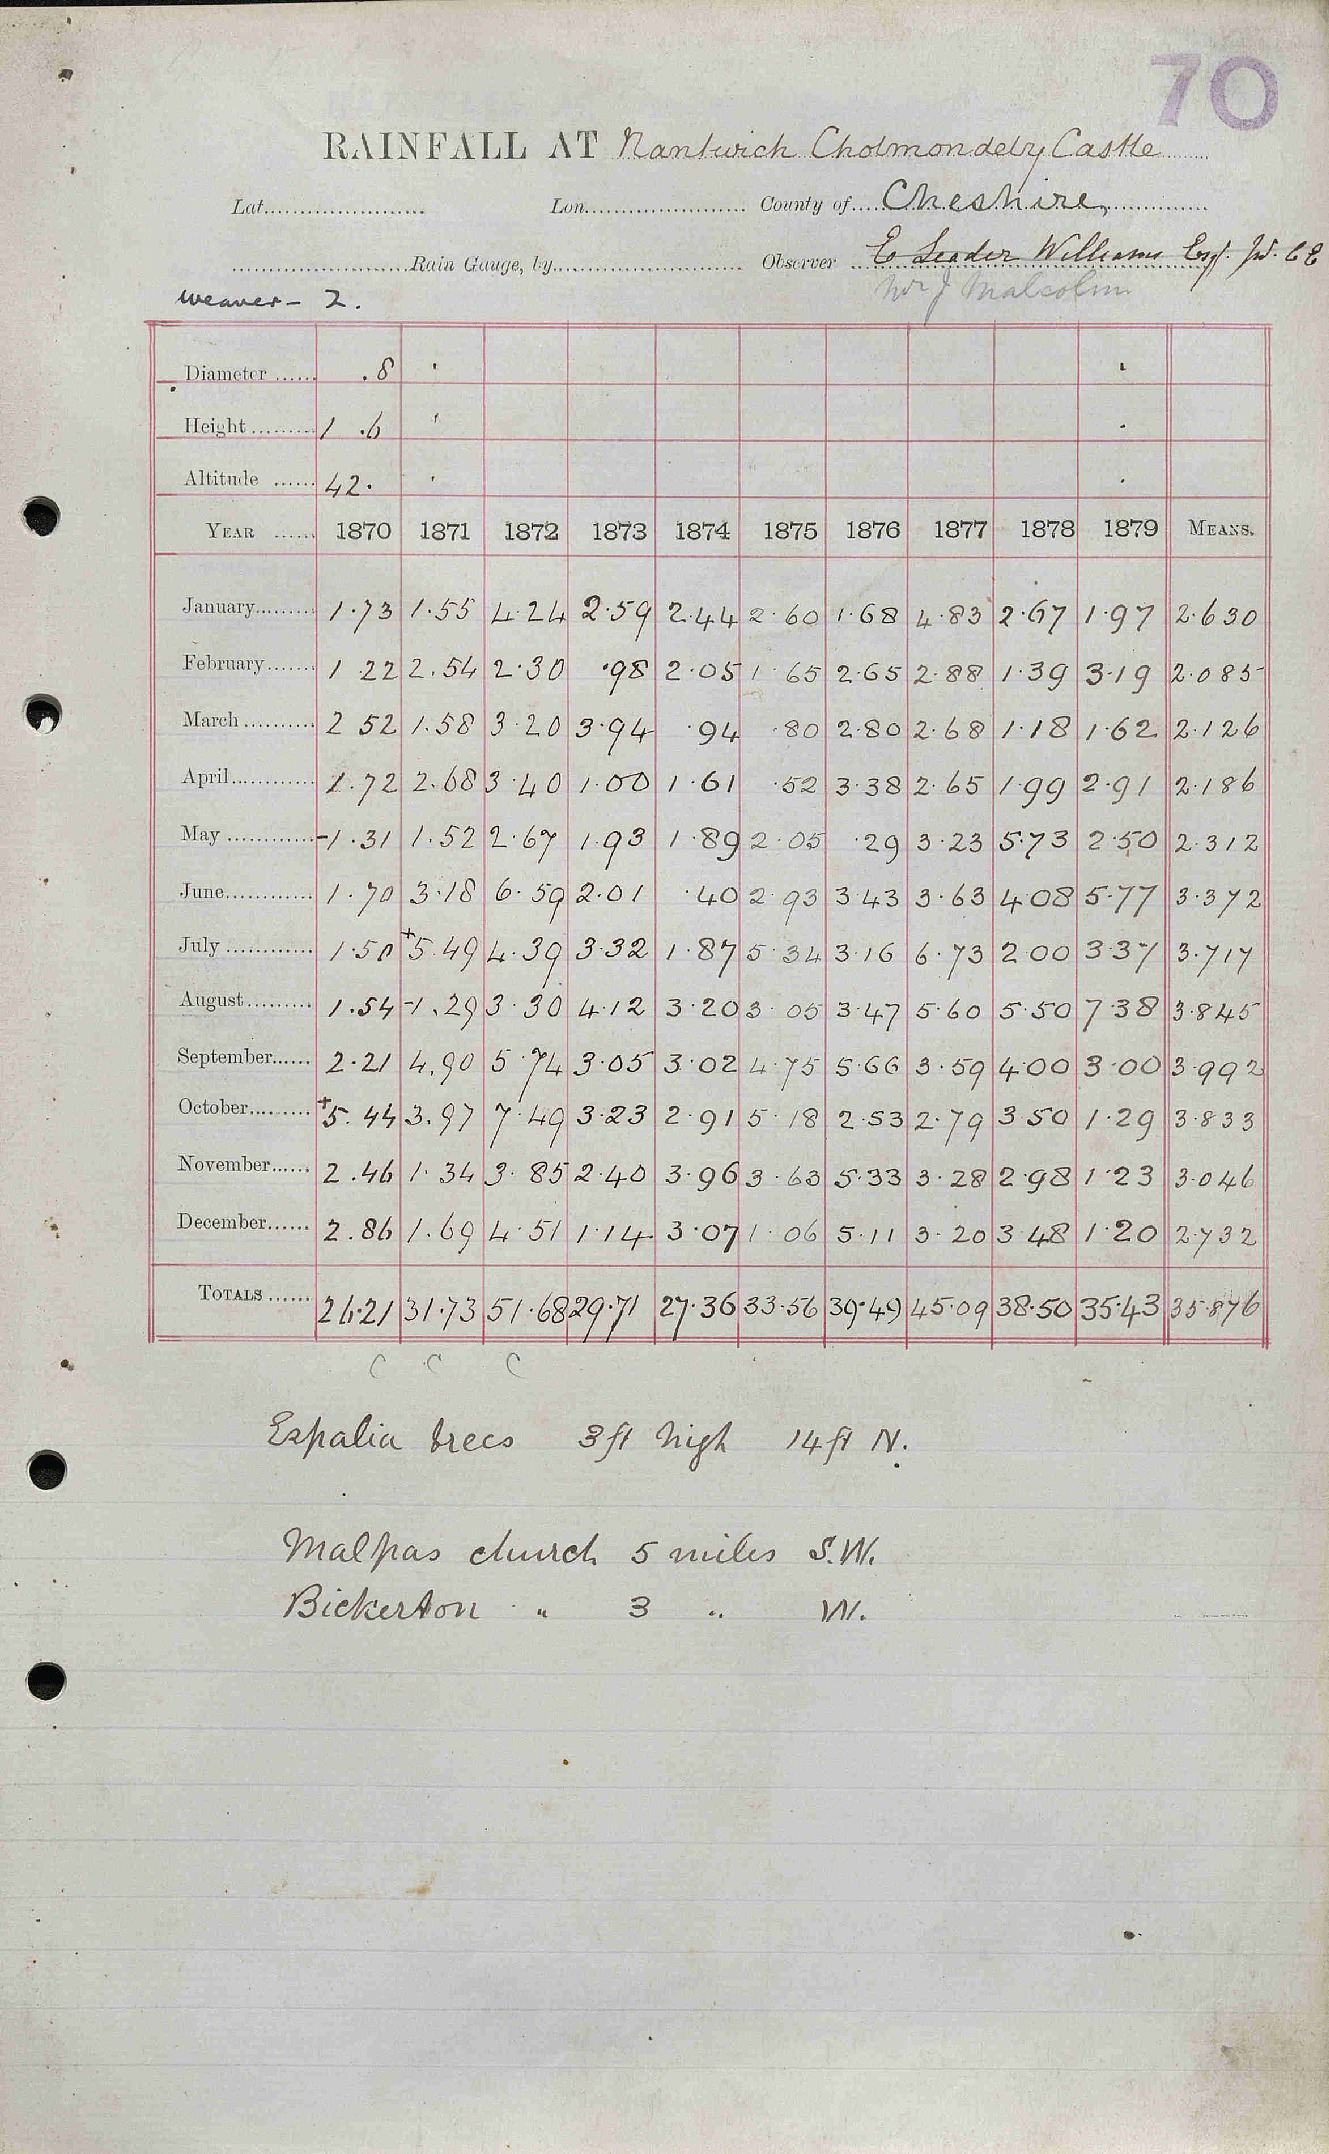 70
RAINFALL AT Nantwich Cholmondely Castle
Lat. Lon. County of Cheshire
Rain Gauge, by Observer E Leader Williams Esq. C E
Mr J Malcolm
Weaver - 2.
Diameter .8 '
Height 1 .6 '
Altitude 42. '
YEAR 1870 1871 1872 1873 1874 1875 1876 1877 1878 1879 MEANS.
January 1.73 1.55 4.24 2.59 2.44 2.60 1.68 4.83 2.67 1.97 2.630
February 1 22 2.54 2.30 .98 2.05 1.65 2.65 2.88 1.39 3.19 2.085
March 2 52 1.58 3.20 3.94 .94 .80 2.80 2.68 1.18 1.62 2.126
April 1.72 2.68 3.40 1.00 1.61 .52 3.38 2.65 1.99 2.91 2.186
May -1.31 1.52 2.67 1.93 1.89 2.05 .29 3.23 5.73 2.50 2.312
June 1.70 3.18 6.59 2.01 .40 2.93 3.43 3.63 4.08 5.77 3.372
July 1.50 +5.49 4.39 3.32 1.87 5.34 3.16 6.73 2.00 3.37 3.717
August 1.54 -1.29 3.30 4.12 3.20 3.05 3.47 5.60 5.50 7.38 3.845
September 2.21 4.90 5.74 3.05 3.02 4.75 5.66 3.59 4.00 3.00 3.992
October +5.44 3.97 7.49 3.23 2.91 5.18 2.53 2.79 3.50 1.29 3.833
November 2.46 1.34 3.85 2.40 3.96 3.63 5.33 3.28 2.98 1.23 3.046
December 2.86 1.69 4.51 1.14 3.07 1.06 5.11 3.20 3.48 1.20 2.732
TOTALS 26.21 31.73 51.68 29.71 27.36 33.56 39.49 45.09 38.50 35.43 35.876
C C C
Espalia trees 3 ft high 14 ft N.
Malpas church 5 miles S.W.
Bickerton " 3 " W.